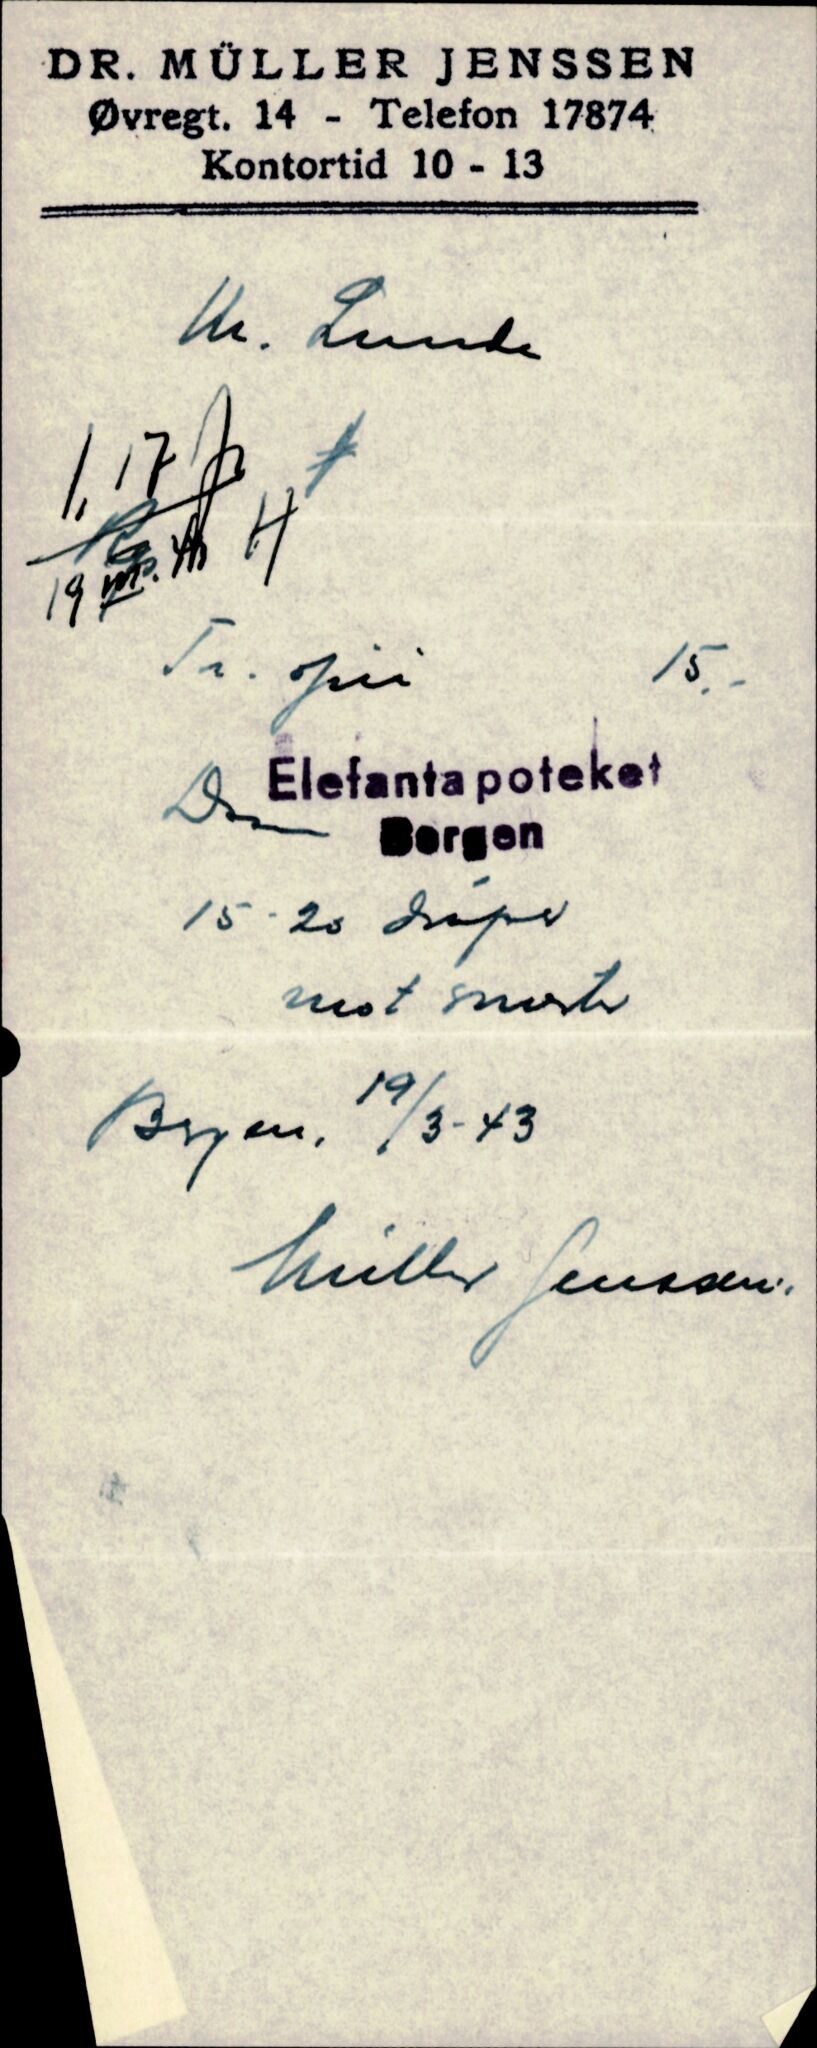 DR. MÜLLER JENSSEN
Øvregt. 14 - Telefon 17874
Kontortid 10 - 13
Lunde
1,17
H
19
Tr. opii 15.-
Elefantapoteket
Bergen
15-20 dråper
mot smerter
Bergen, 19/3-43
Müller Jenssen.